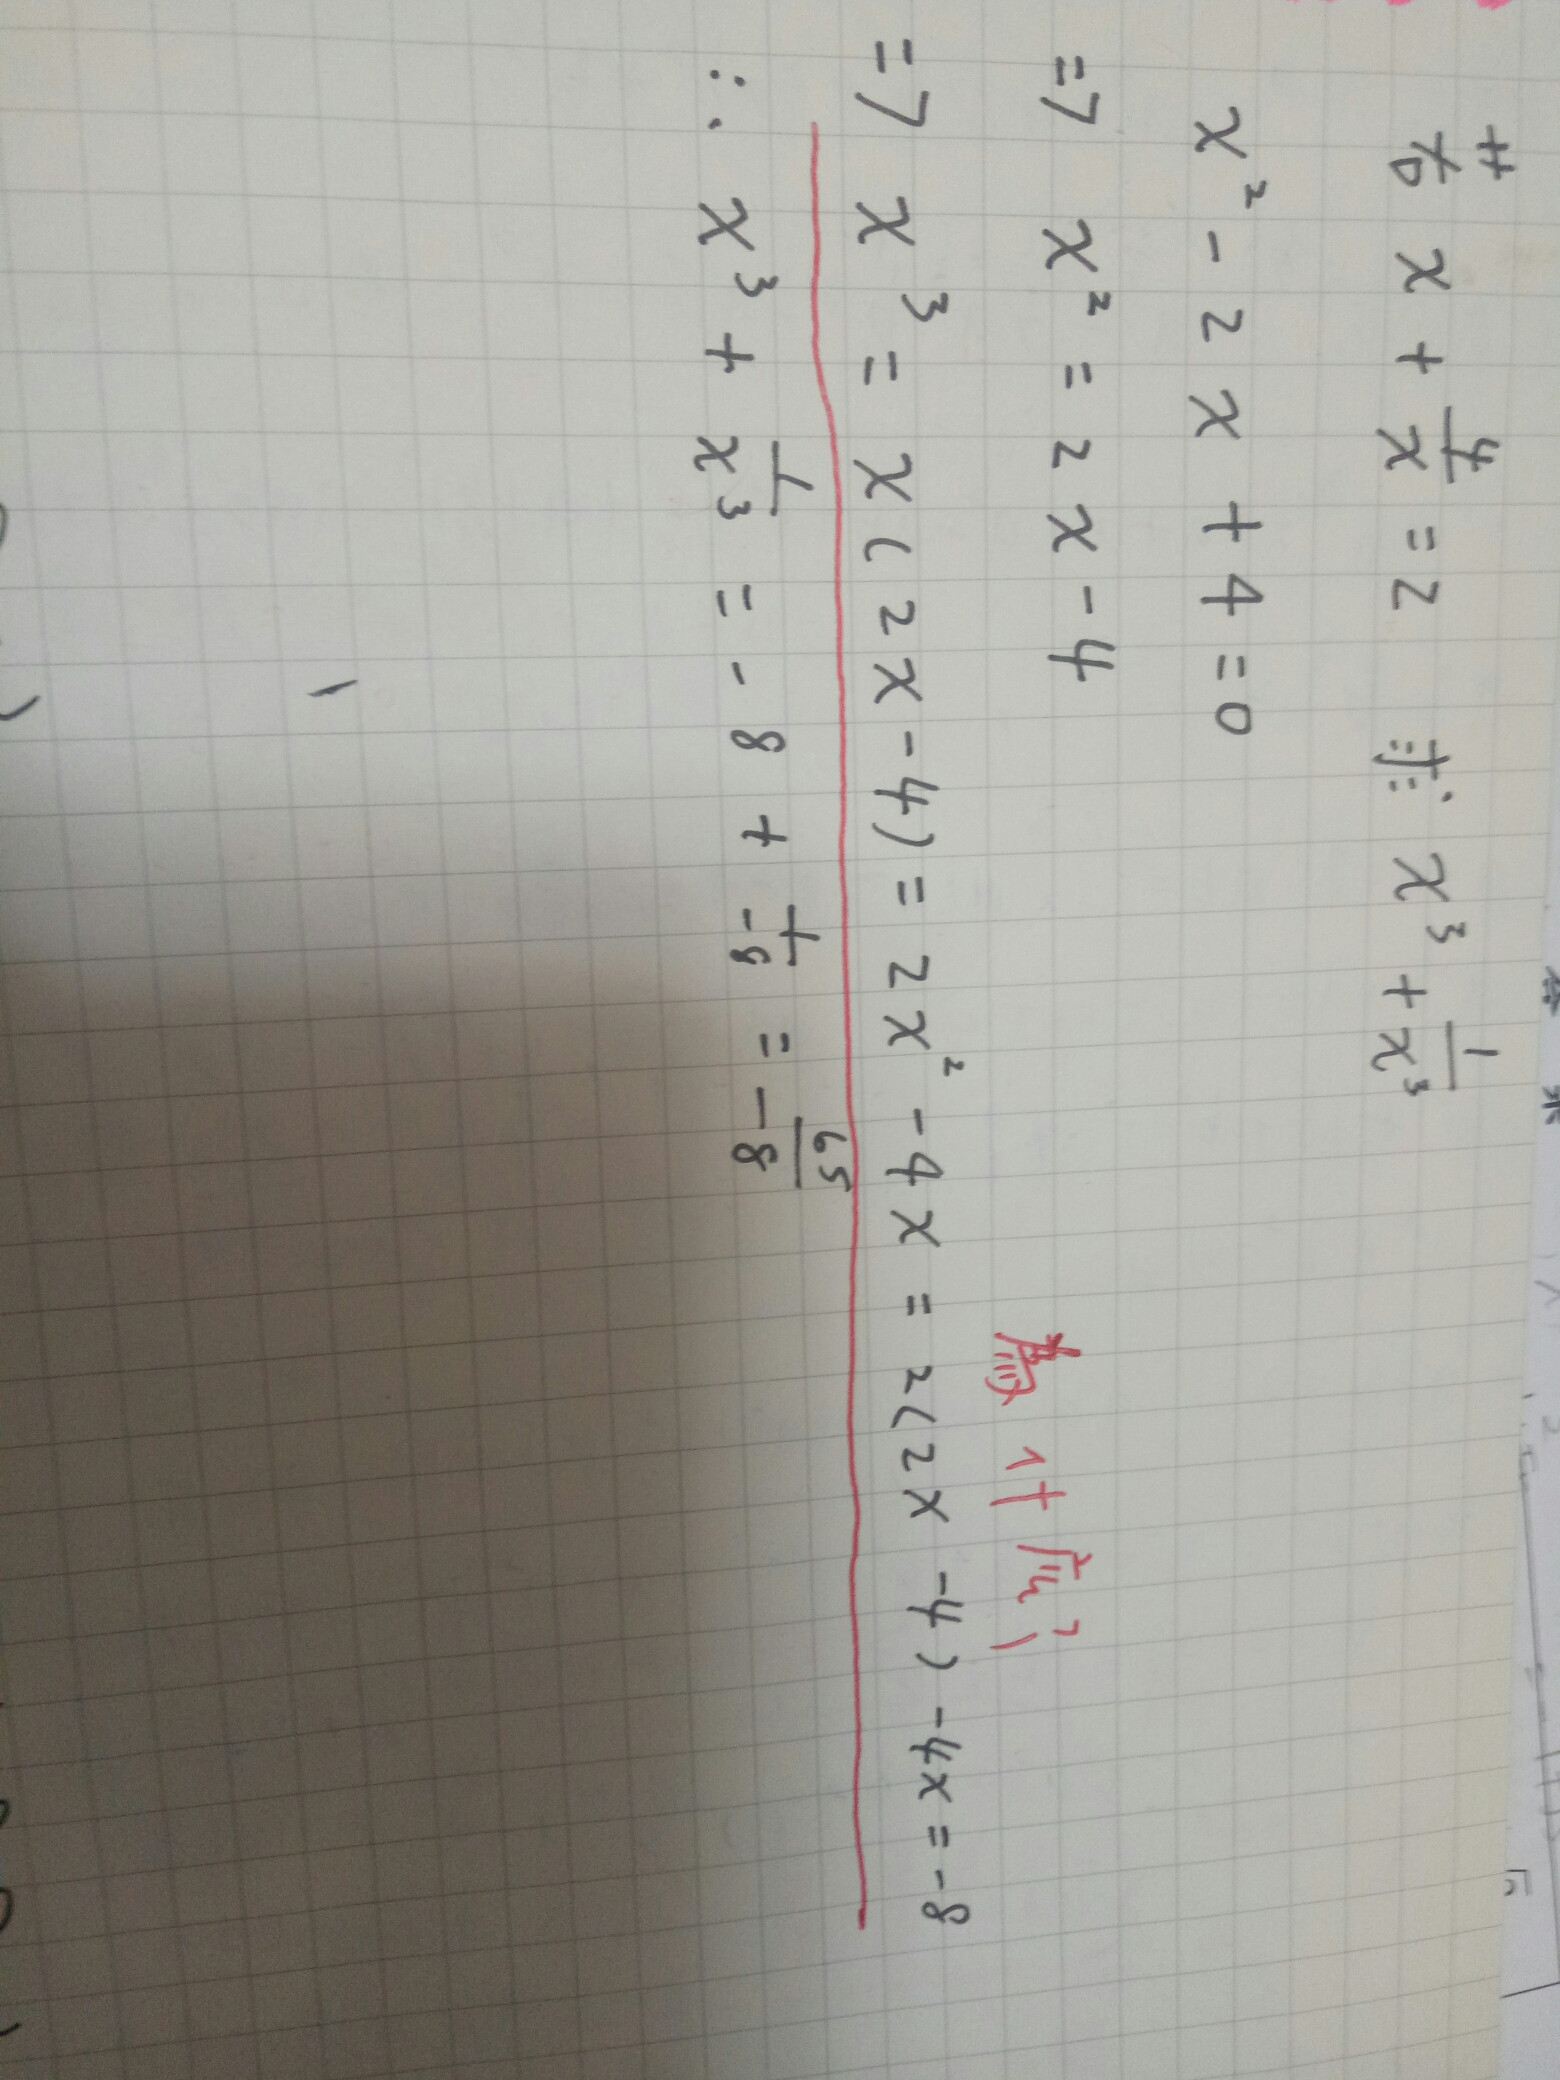 若 x + 4/x = 2 求: x³ + 1/x³
x² - 2x + 4 = 0
=7 x² = 2x - 4
為什麼?
=7 x³ = x(2x-4) = 2x² - 4x = 2(2x-4) - 4x = -8
∴ x³ + 1/x³ = -8 + 1/-8 = -65/8